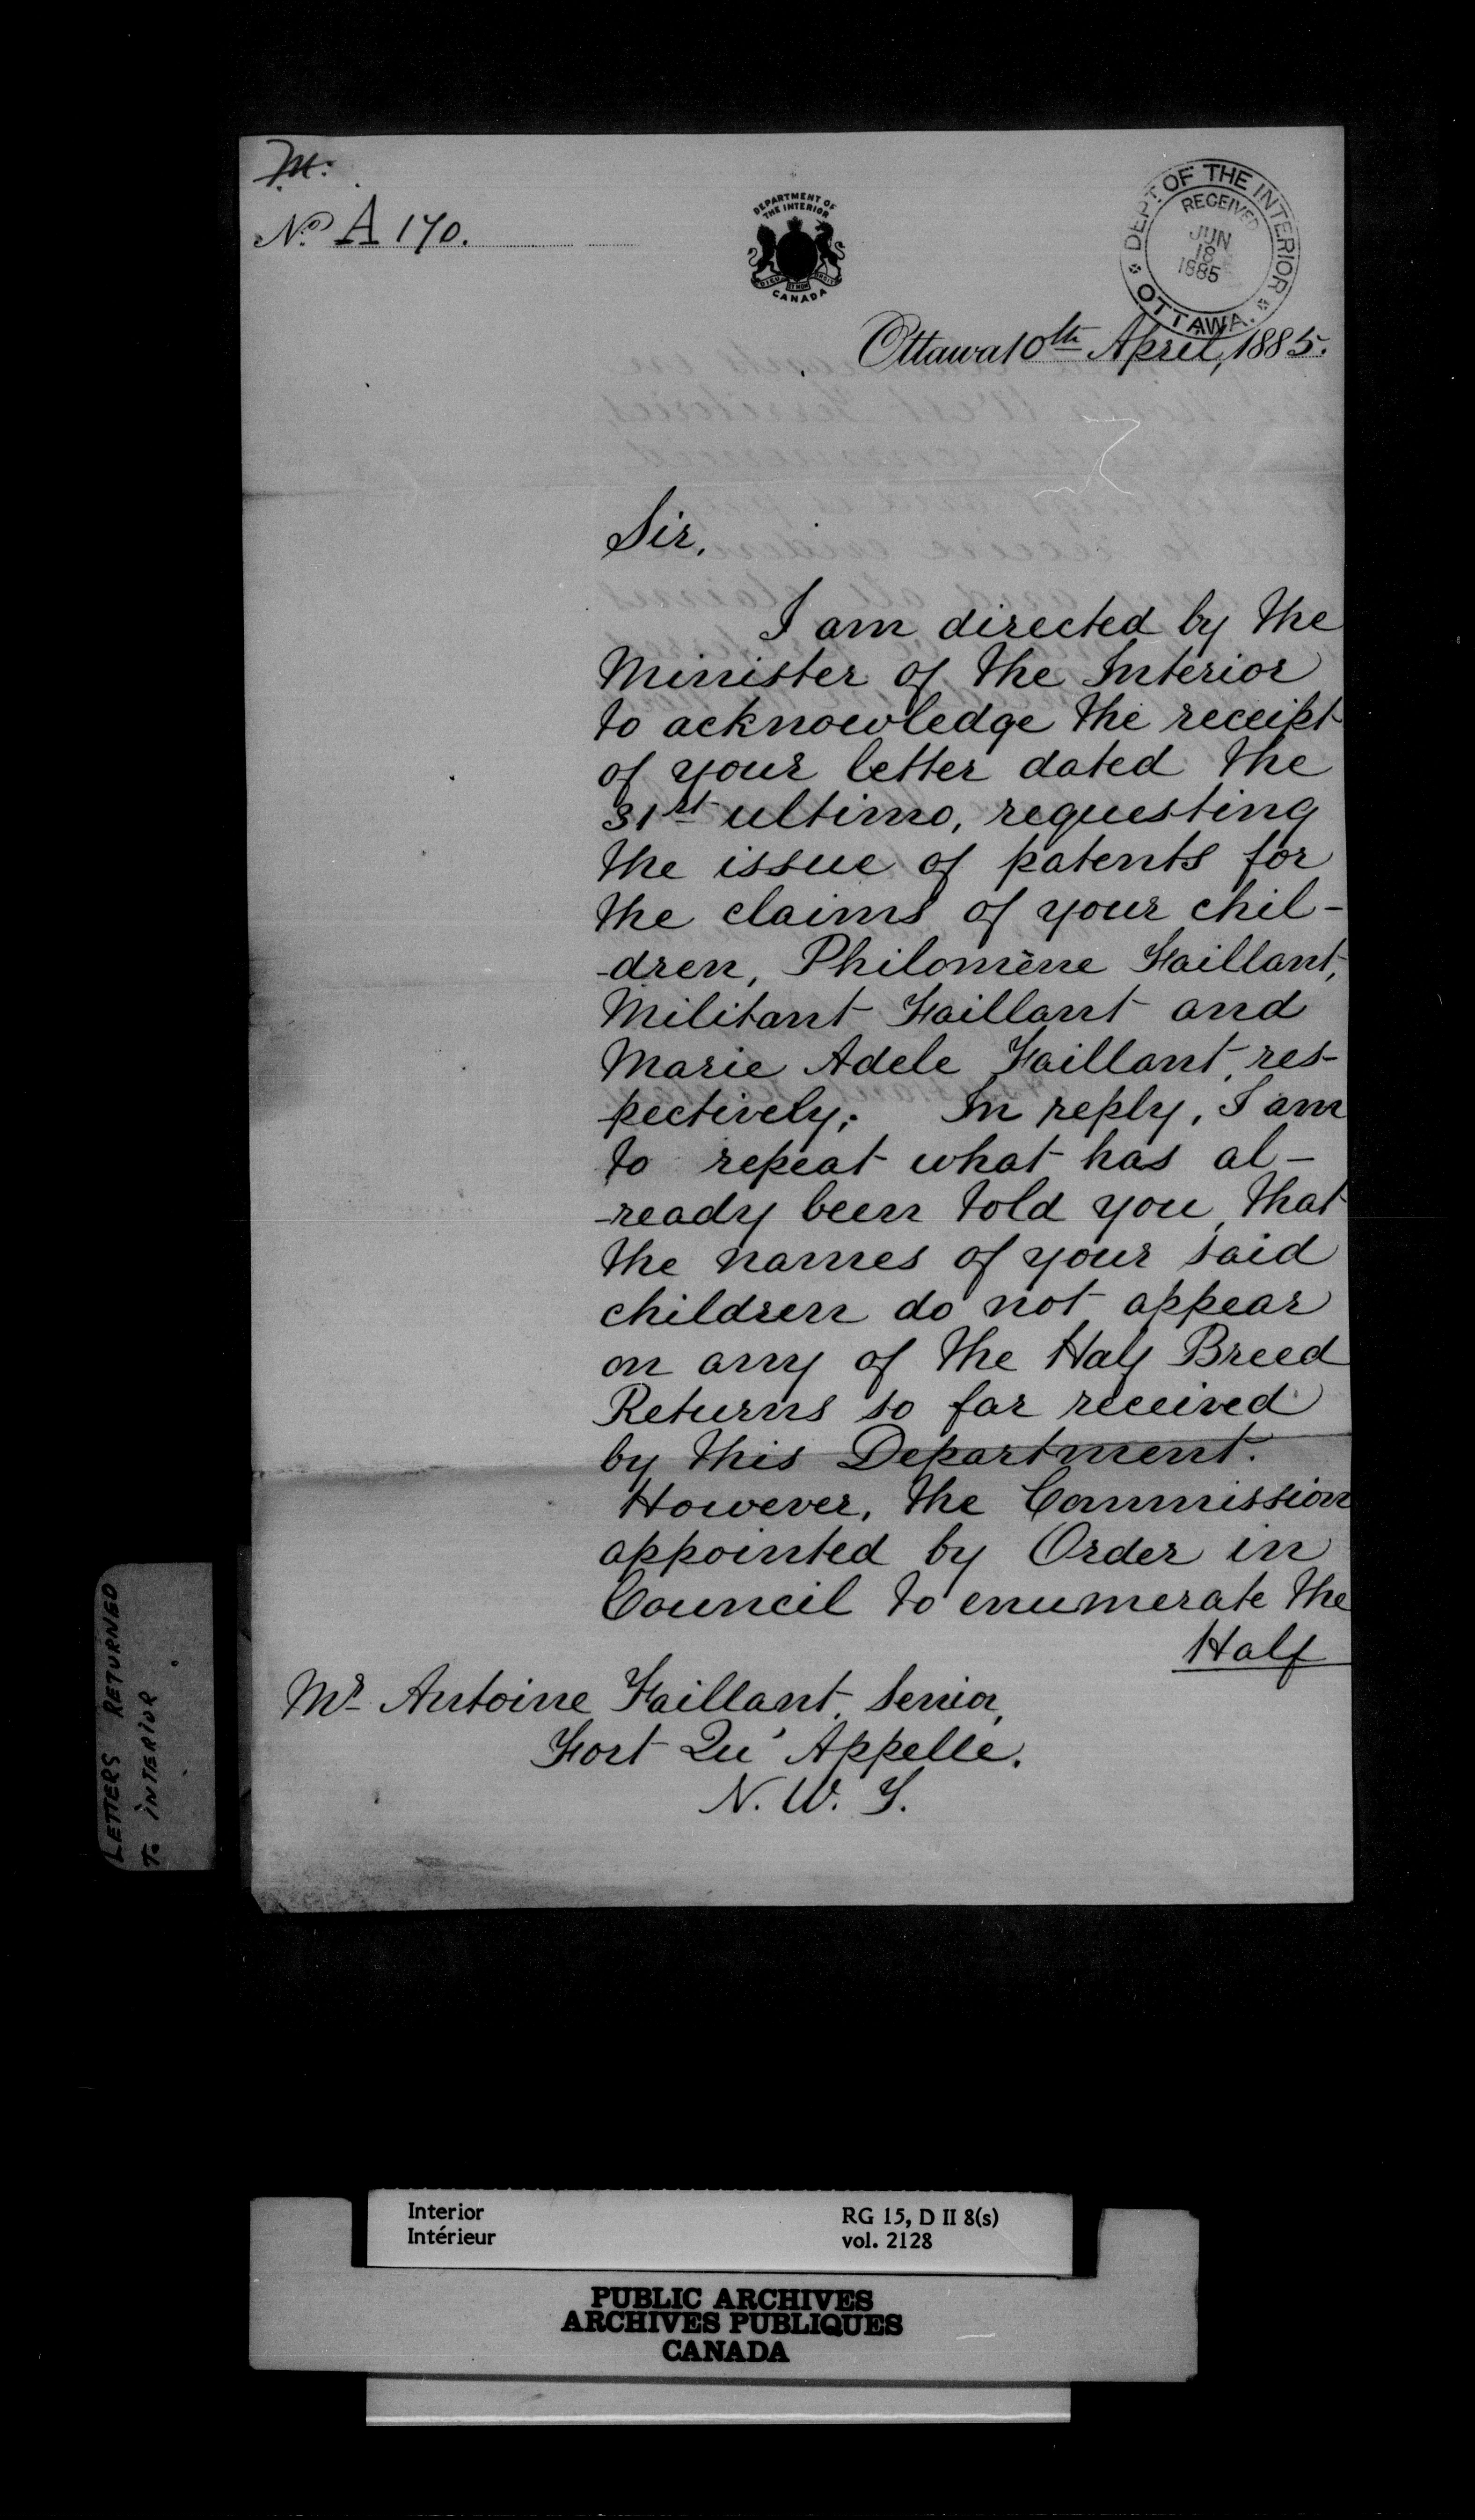 M.
No. A 170.
DEPARTMENT OF
THE INTERIOR
CANADA
DEPT OF THE INTERIOR
RECEIVED
JUN
18
1885
OTTAWA.
Ottawa 10th April, 1885.
Sir,
I am directed by the
Minister of the Interior
to acknowledge the receipt
of your letter dated the
31st ultimo, requesting
the issue of patents for
the claims of your chil-
-dren, Philomène Faillant,
Militant Faillant and
Marie Adele Faillant, res-
pectively. In reply, I am
to repeat what has al-
-ready been told you, that
the names of your said
children do not appear
on any of the Half Breed
Returns so far received
by this Department.
However, the Commission
appointed by Order in
Council to enumerate the
Half
Mr Antoine Faillant Senior,
Fort Qu'Appelle.
N. W. T.
LETTERS RETURNED
TO INTERIOR
Interior
Intérieur
RG 15, D II 8(s)
vol. 2128
PUBLIC ARCHIVES
ARCHIVES PUBLIQUES
CANADA